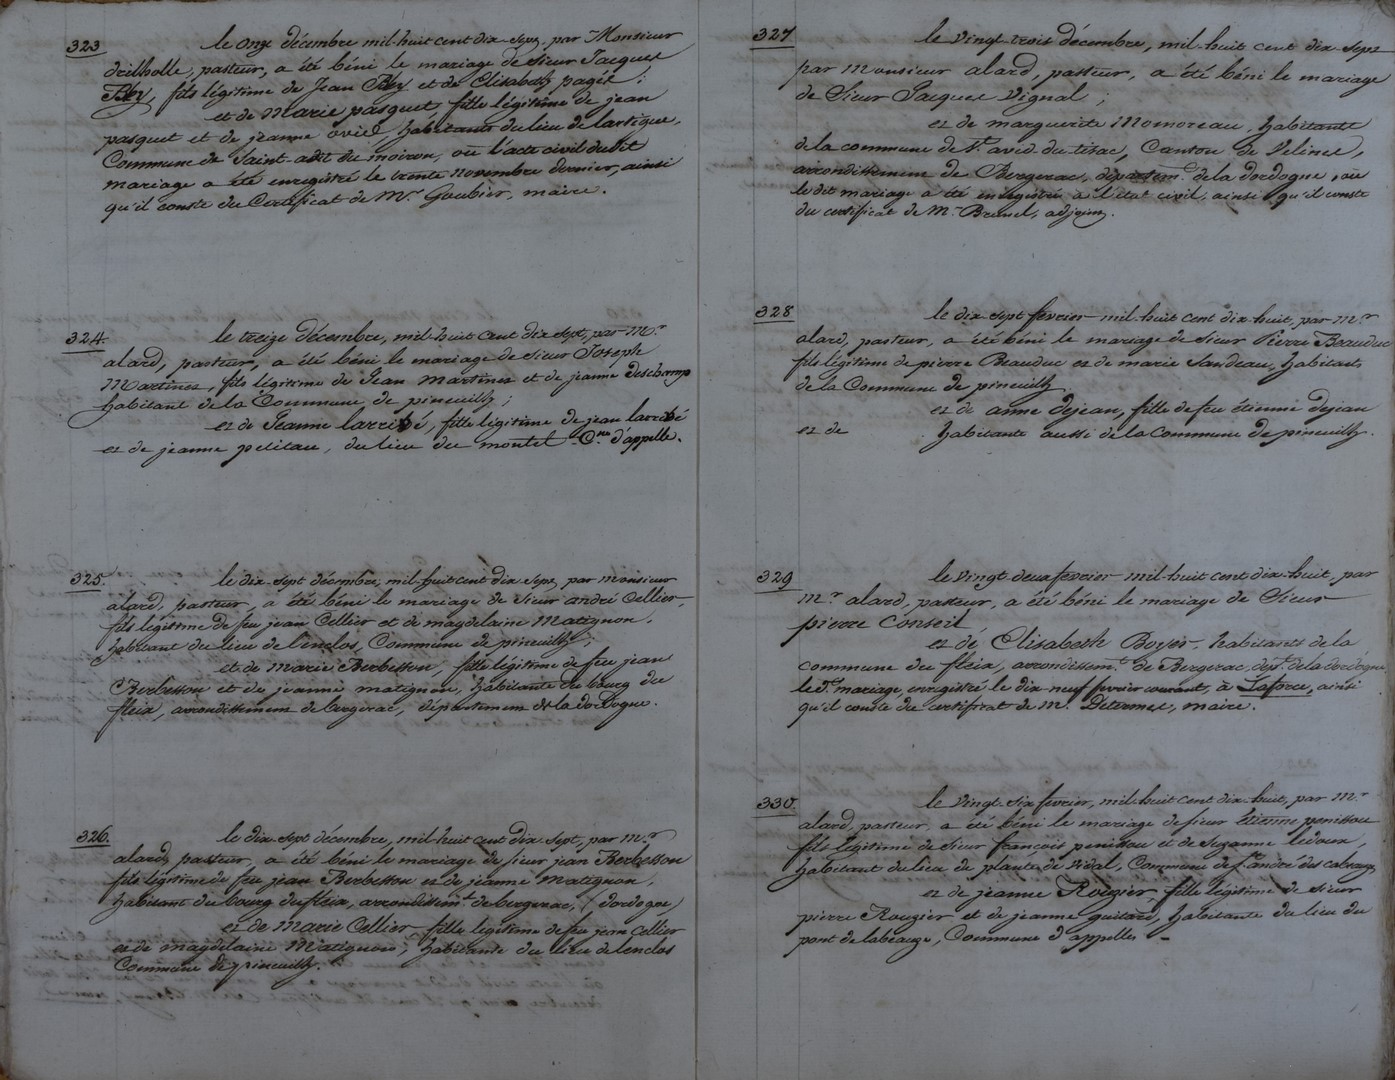 323
le onze décembre mil-huit cent dix-sept, par Monsieur
deilholle, pasteur, a été béni le mariage de Sieur Jacques
fils légitime de Jean et de Elisabeth pagés ;
et de Marie pasquet, fille légitime de jean
pasquet et de jeanne habitants du lieu de lartigue,
Commune de Saint-avit du moiron, où l'acte civil dudit
mariage a été enregistré le trente novembre dernier, ainsi
qu'il conste du Certificat de Mr. Goubier, maire.
324.
le treize décembre, mil-huit cent dix-sept, par Mr.
alard, pasteur, a été béni le mariage de sieur Joseph
Martines, fils légitime de Jean Martines et de jeanne deschamp
habitant de la Commune de pineuilh ;
et de Jeanne larribé, fille légitime de jean larribé
et de jeanne pelitau, du lieu du montet Cne. d'appelle.
325.
le dix-sept décembre, mil-huit cent dix-sept, par monsieur
alard, pasteur, a été béni le mariage de sieur andré Cellier,
fils légitime de feu jean Cellier et de magdelaine Matignon,
habitant du lieu de l'enclos, Commune de pineuilh ;
et de Marie Berbesson, fille légitime de feu jean
Berbesson et de jeanne matignon, habitante du bourg du
fleix, arrondissement de bergerac, département de la dordogne.
326.
le dix-sept décembre, mil-huit cent dix-sept, par Mr.
alard, pasteur, a été béni le mariage de sieur jean Berbesson
fils légitime de feu jean Berbesson et de jeanne Matignon,
habitant du bourg du fleix, arrondissemt. de bergerac, (dordogne)
et de Marie Cellier, fille légitime de feu jean Cellier
et de magdelaine Matignon ; habitante du lieu de lenclos
Commune de pineuilh.
327
le vingt-trois décembre, mil-huit cent dix-sept
par monsieur alard, pasteur, a été béni le mariage
de Sieur Jacques Vignal ;
et de marguerite Momoreau, habitante
de la commune de St. avid du tisac, Canton de Velines,
arrondissement de Bergerac, départemt. de la dordogne, où
le dit mariage a été enregistré à l'état civil, ainsi qu'il conste
du certificat de Mr. Brunel, adjoint.
328
le dix-sept février mil-huit cent dix-huit, par mr.
alard, pasteur, a été béni le mariage de sieur Pierre Beauduc
fils légitime de pierre Beauduc et de marie Sandeau, habitants
de la Commune de pineuilh
et de anne dejean, fille de feu étienne dejean
et de habitante aussi de la commune de pineuilh.
329
le vingt-deux février mil-huit cent dix-huit, par
mr. alard, pasteur, a été béni le mariage de Sieur
pierre Conseil
et de Elisabeth Boyer, habitants de la
commune du fleix, arrondissemt. de Bergerac, dept. de la dordogne
le dt. mariage, enregistré le dix-neuf février courant, à Laforce, ainsi
qu'il conste du certificat de Mr. Determes, maire.
330.
le vingt-six février, mil-huit cent dix-huit, par mr.
alard, pasteur, a été béni le mariage de sieur étienne penissou
fils légitime de sieur françois penissou et de Suzanne ledoux,
habitant du lieu de plante de vidal, Commune de St. andré du cabauze
et de jeanne Rouzier, fille légitime de sieur
pierre Rouzier et de jeanne guitard, habitante du lieu du
pont de labeauze, Commune d'appelles -